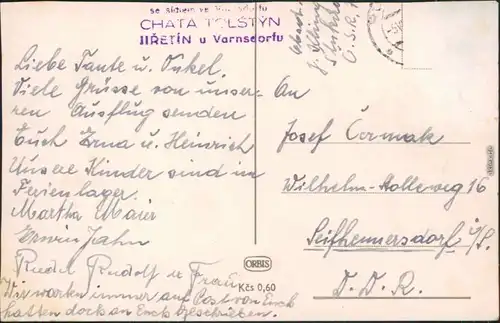 CHATA TOLŠTÝN
JIŘETÍN u Varnsdorfu
Liebe Tante u. Onkel.
Viele Grüsse von unse-
ren Ausflug senden
Euch Erna u. Heinrich
Unsere Kinder sind im
Ferienlager.
Martha Maur
Erwin Jahn
Riedel Rudolf u Frau
Wir warten immer auf Post von Euch
hatten doch an Euch geschrieben.
ORBIS
Kčs 0,60
Č.S.R.
An
Josef Čermak
Wilhelm-Kolleweg 16
Seifhennersdorf i/S.
D.D.R.